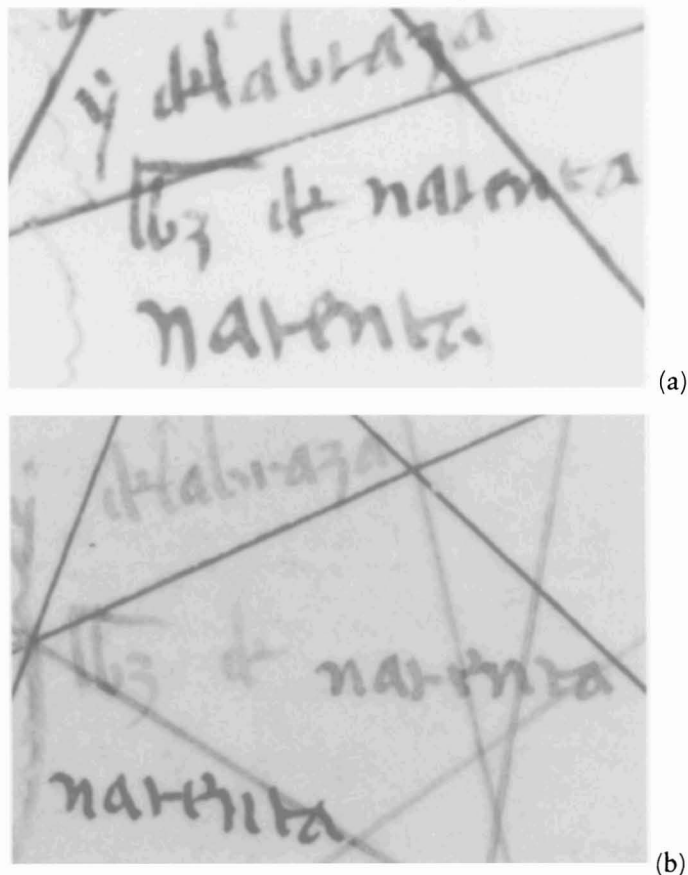 ÿ delabraza
de narenta
narenta
(a)
delabraza
de narenta
narenta
(b)